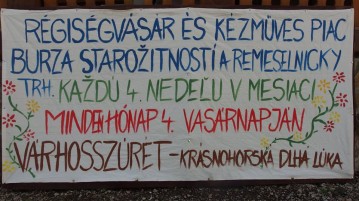 RÉGISÉGVÁSÁR ÉS KÉZMŰVES PIAC
BURZA STAROŽITNOSTÍ A REMESELNICKÝ
TRH. KAŽDÚ 4. NEDEĽU V MESIACI
MINDEN HÓNAP 4. VASÁRNAPJÁN
VÁRHOSSZÚRÉT - KRÁSNOHORSKÁ DLHÁ LÚKA